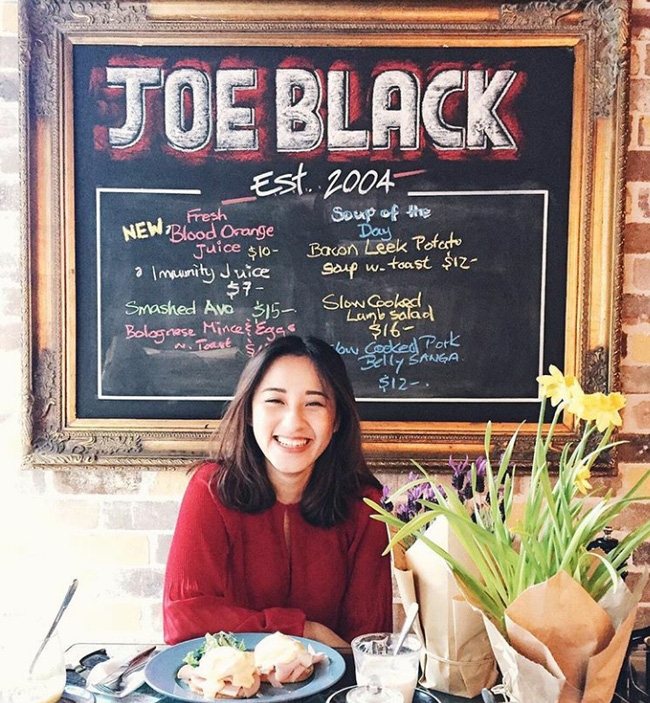 JOE BLACK
Est. 2004
NEW, Fresh
Blood Orange
Juice $10-
Immunity Juice
$7-
Smashed Avo $15-
Bolognese Mince & Eggs
w. Toast
Soup of the
Day
Bacon Leek Potato
Soup w- toast $12-
Slow Cooked
Lamb Salad
$16-
Cooked Pork
Belly SANGA
$12-.